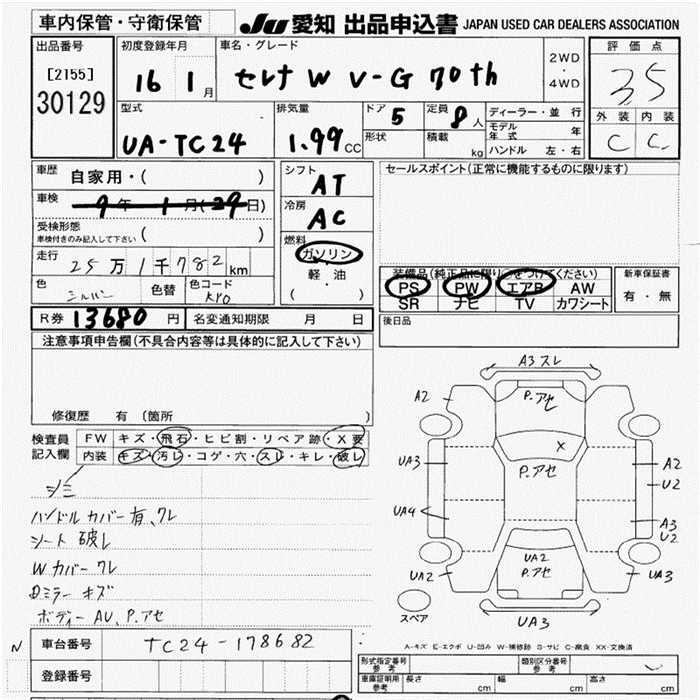 車内保管・守衛保管
JU 愛知 出品申込書 JAPAN USED CAR DEALERS ASSOCIATION
出品番号
[2155]
30129
初度登録年月
16 1 月
車名・グレード
セレナ W V-G 70th
2WD
・
4WD
評価点
35
外装 内装
C C
型式
UA-TC24
排気量
1.99 CC
ドア 5
形状
定員 8 人
積載 kg
ディーラー・並行
モデル年式 年
ハンドル 左・右
車歴 自家用・( )
車検 9年 1月(29日)
受検形態 ( )
車検付きのみ記入して下さい
走行 25万1千782km
色 シルバー 色替 色コード KY0
シフト AT
冷房 AC
燃料
ガソリン
軽・油
( )
セールスポイント(正常に機能するものに限ります)
装備品(純正品に限り○をつけてください)
PS PW エアB AW
SR ナビ TV カワシート
新車保証書
有・無
後日品
R券 13680 円 名変通知期限 月 日
注意事項申告欄(不具合内容等は具体的に記入して下さい)
修復歴 有 〔箇所 〕
検査員記入欄
FW キズ・飛石・ヒビ割・リペア跡・X要
内装 キズ・汚レ・コゲ・穴・スレ・キレ・破レ
シミ
ハンドルカバー有、ワレ
シート破レ
Wカバーワレ
Dミラーキズ
ボディーAU、P.アセ
A3スレ
A2 P.アセ
X
UA3 P.アセ A2
U2
UA4 A3
U2
UA2 UA2 UA3
P.アセ
スペア
UA3
A-キズ E-エクボ U-凹み W-補修跡 S-サビ C-腐食 X・XX-交換済
N 車台番号 TC24-178682
登録番号
形式指定番号 参考
類別区分番号 参考
車庫証明用 参考 長さ cm 幅 cm 高さ cm